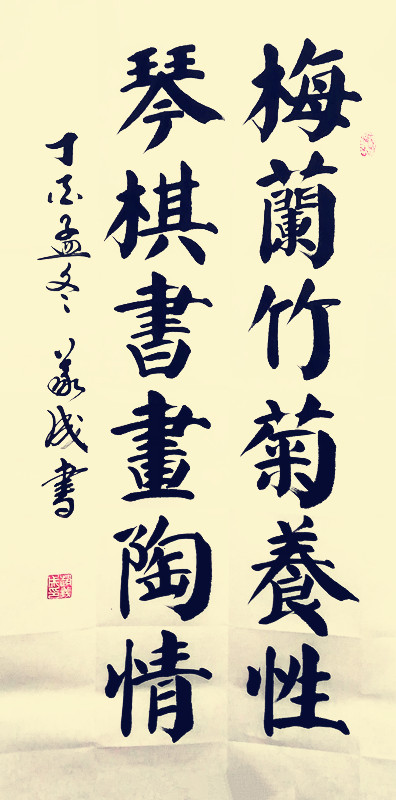 梅蘭竹菊養性
琴棋書畫陶情
丁酉孟冬 義成書